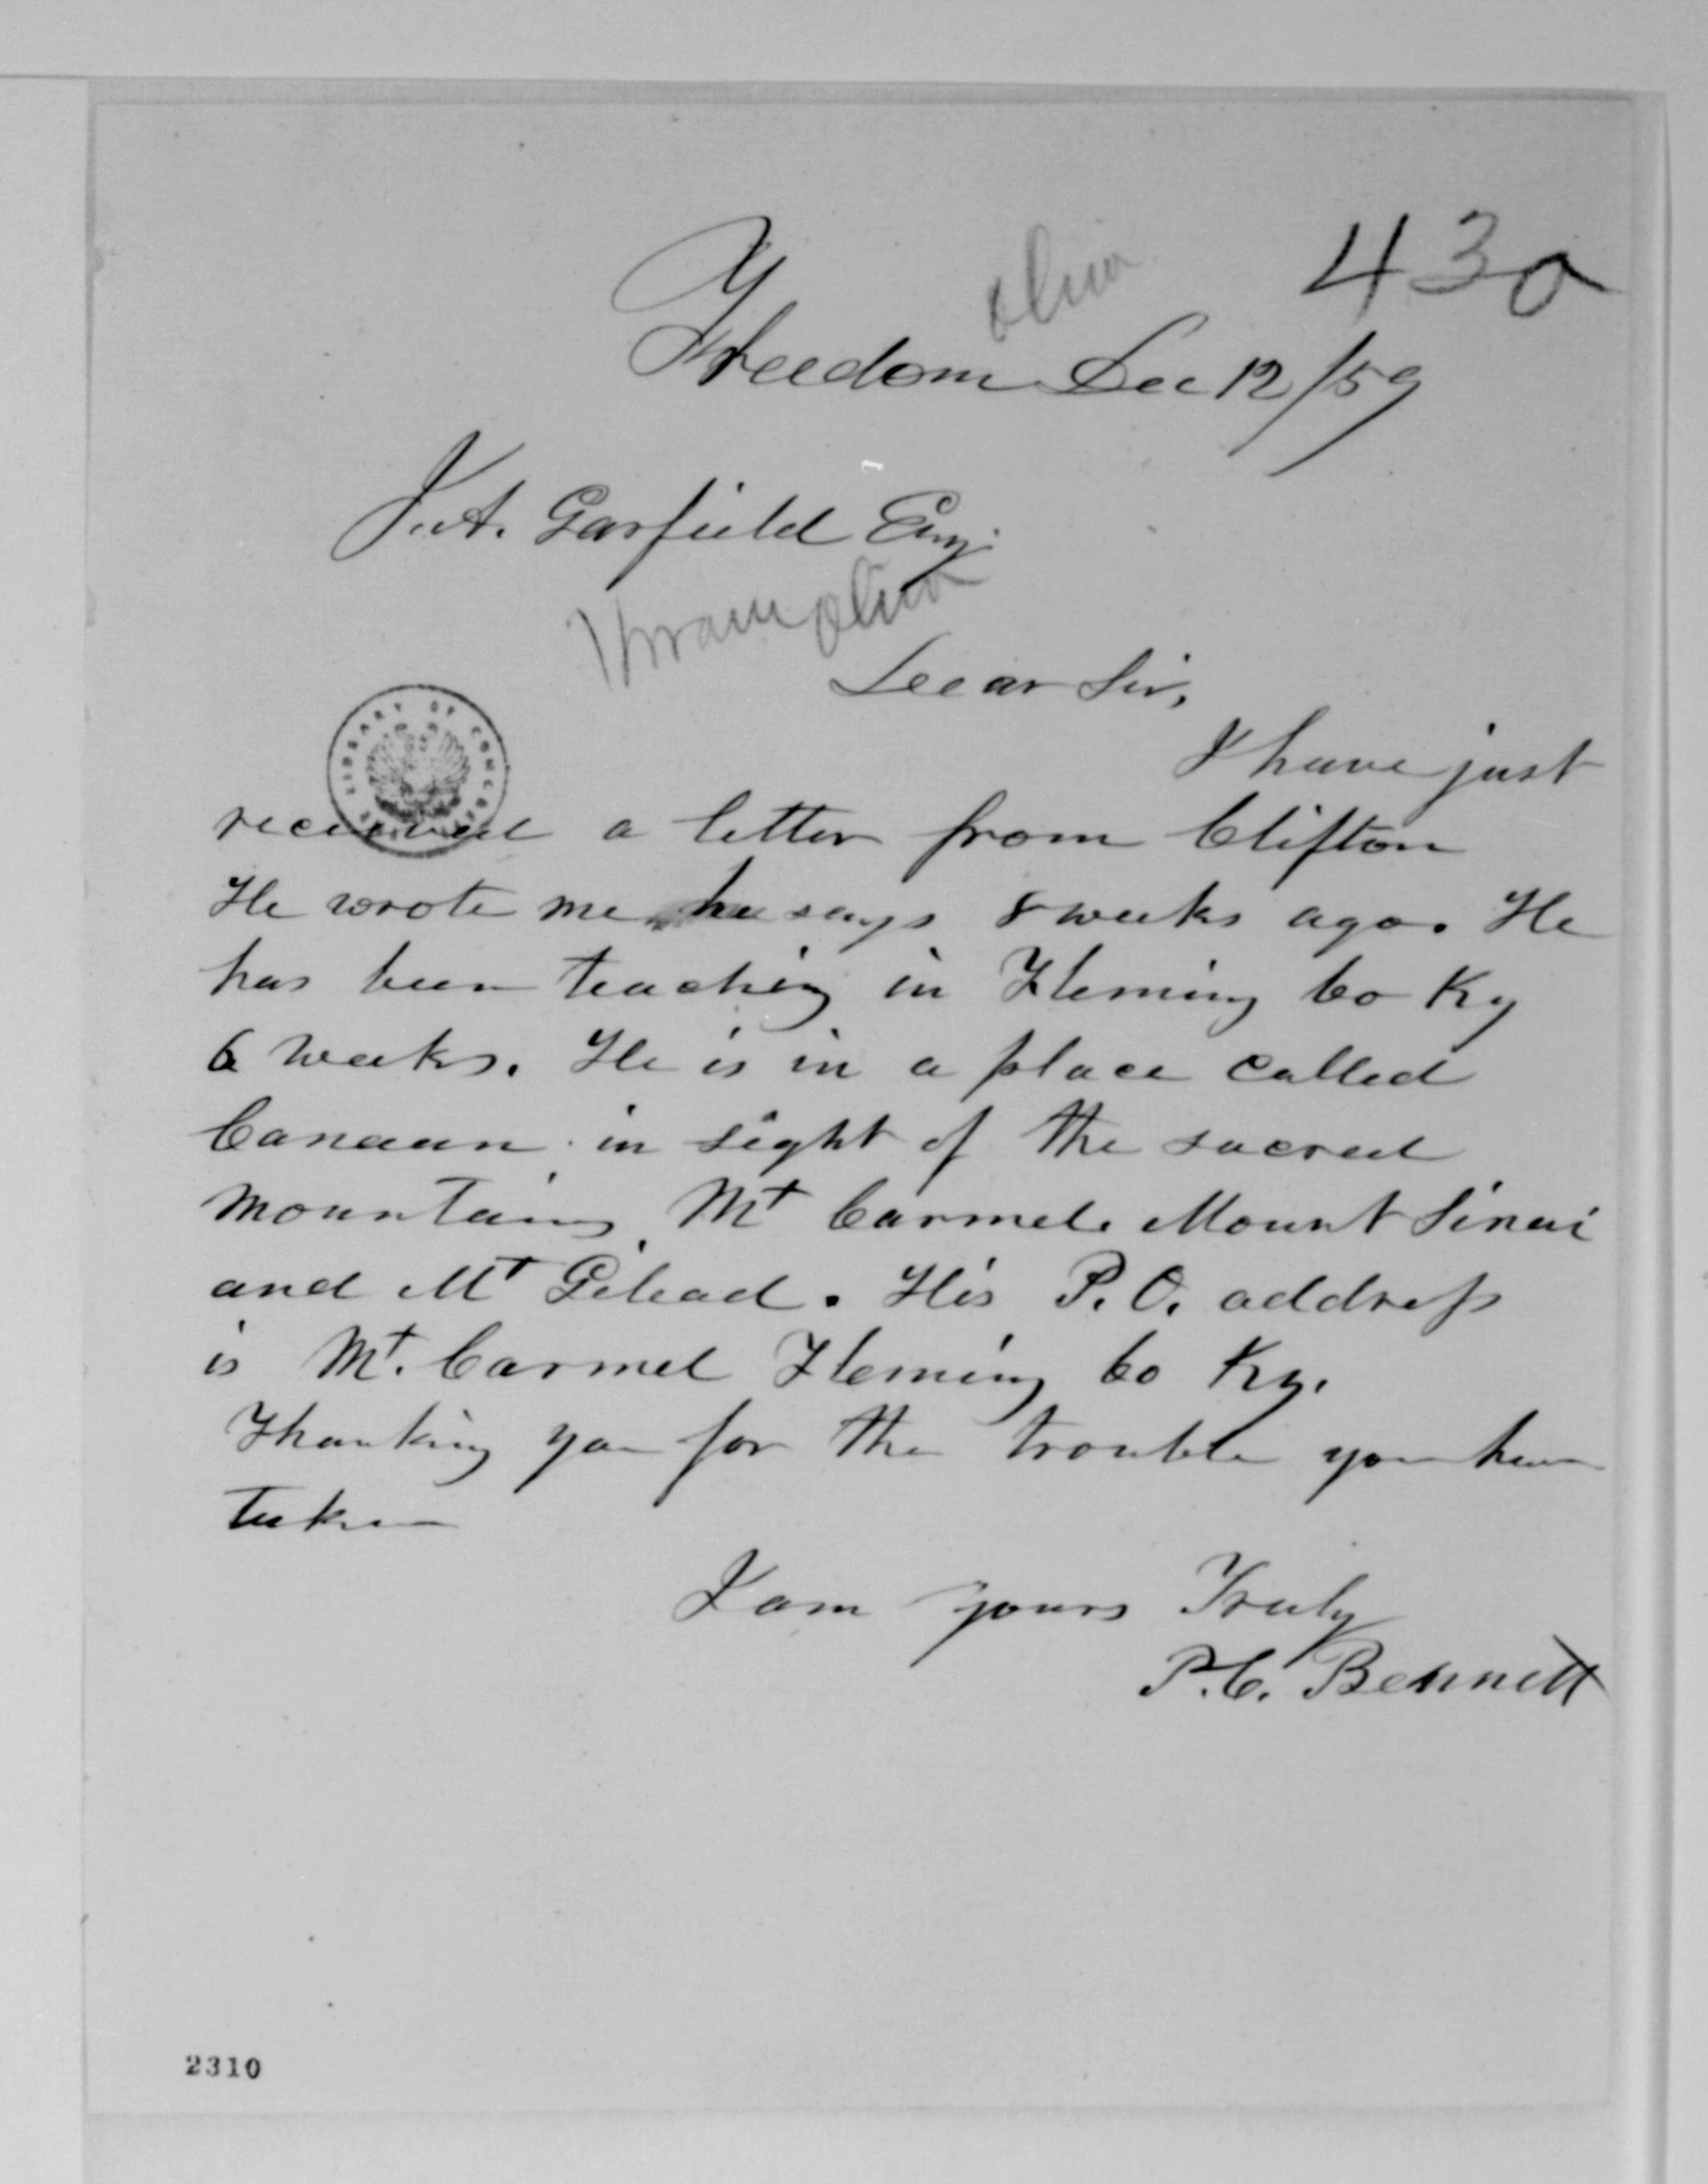 430
Ohio
Freedom Dec 12/59
J. A. Garfield Esq.
Hiram Ohio
Dear Sir,
I have just
LIBRARY OF CONGRESS
recieved a letter from Clifton
He wrote me he says 8 weeks ago. He
has been teaching in Fleming Co Ky
6 weeks. He is in a place called
Canaan in sight of the sacred
mountains Mt Carmel. Mount Sinai
and Mt Gilead. His P.O. address
is Mt. Carmel Fleming Co Ky.
Thanking you for the trouble you have
taken
I am yours Truly
P.C. Bennett
2310